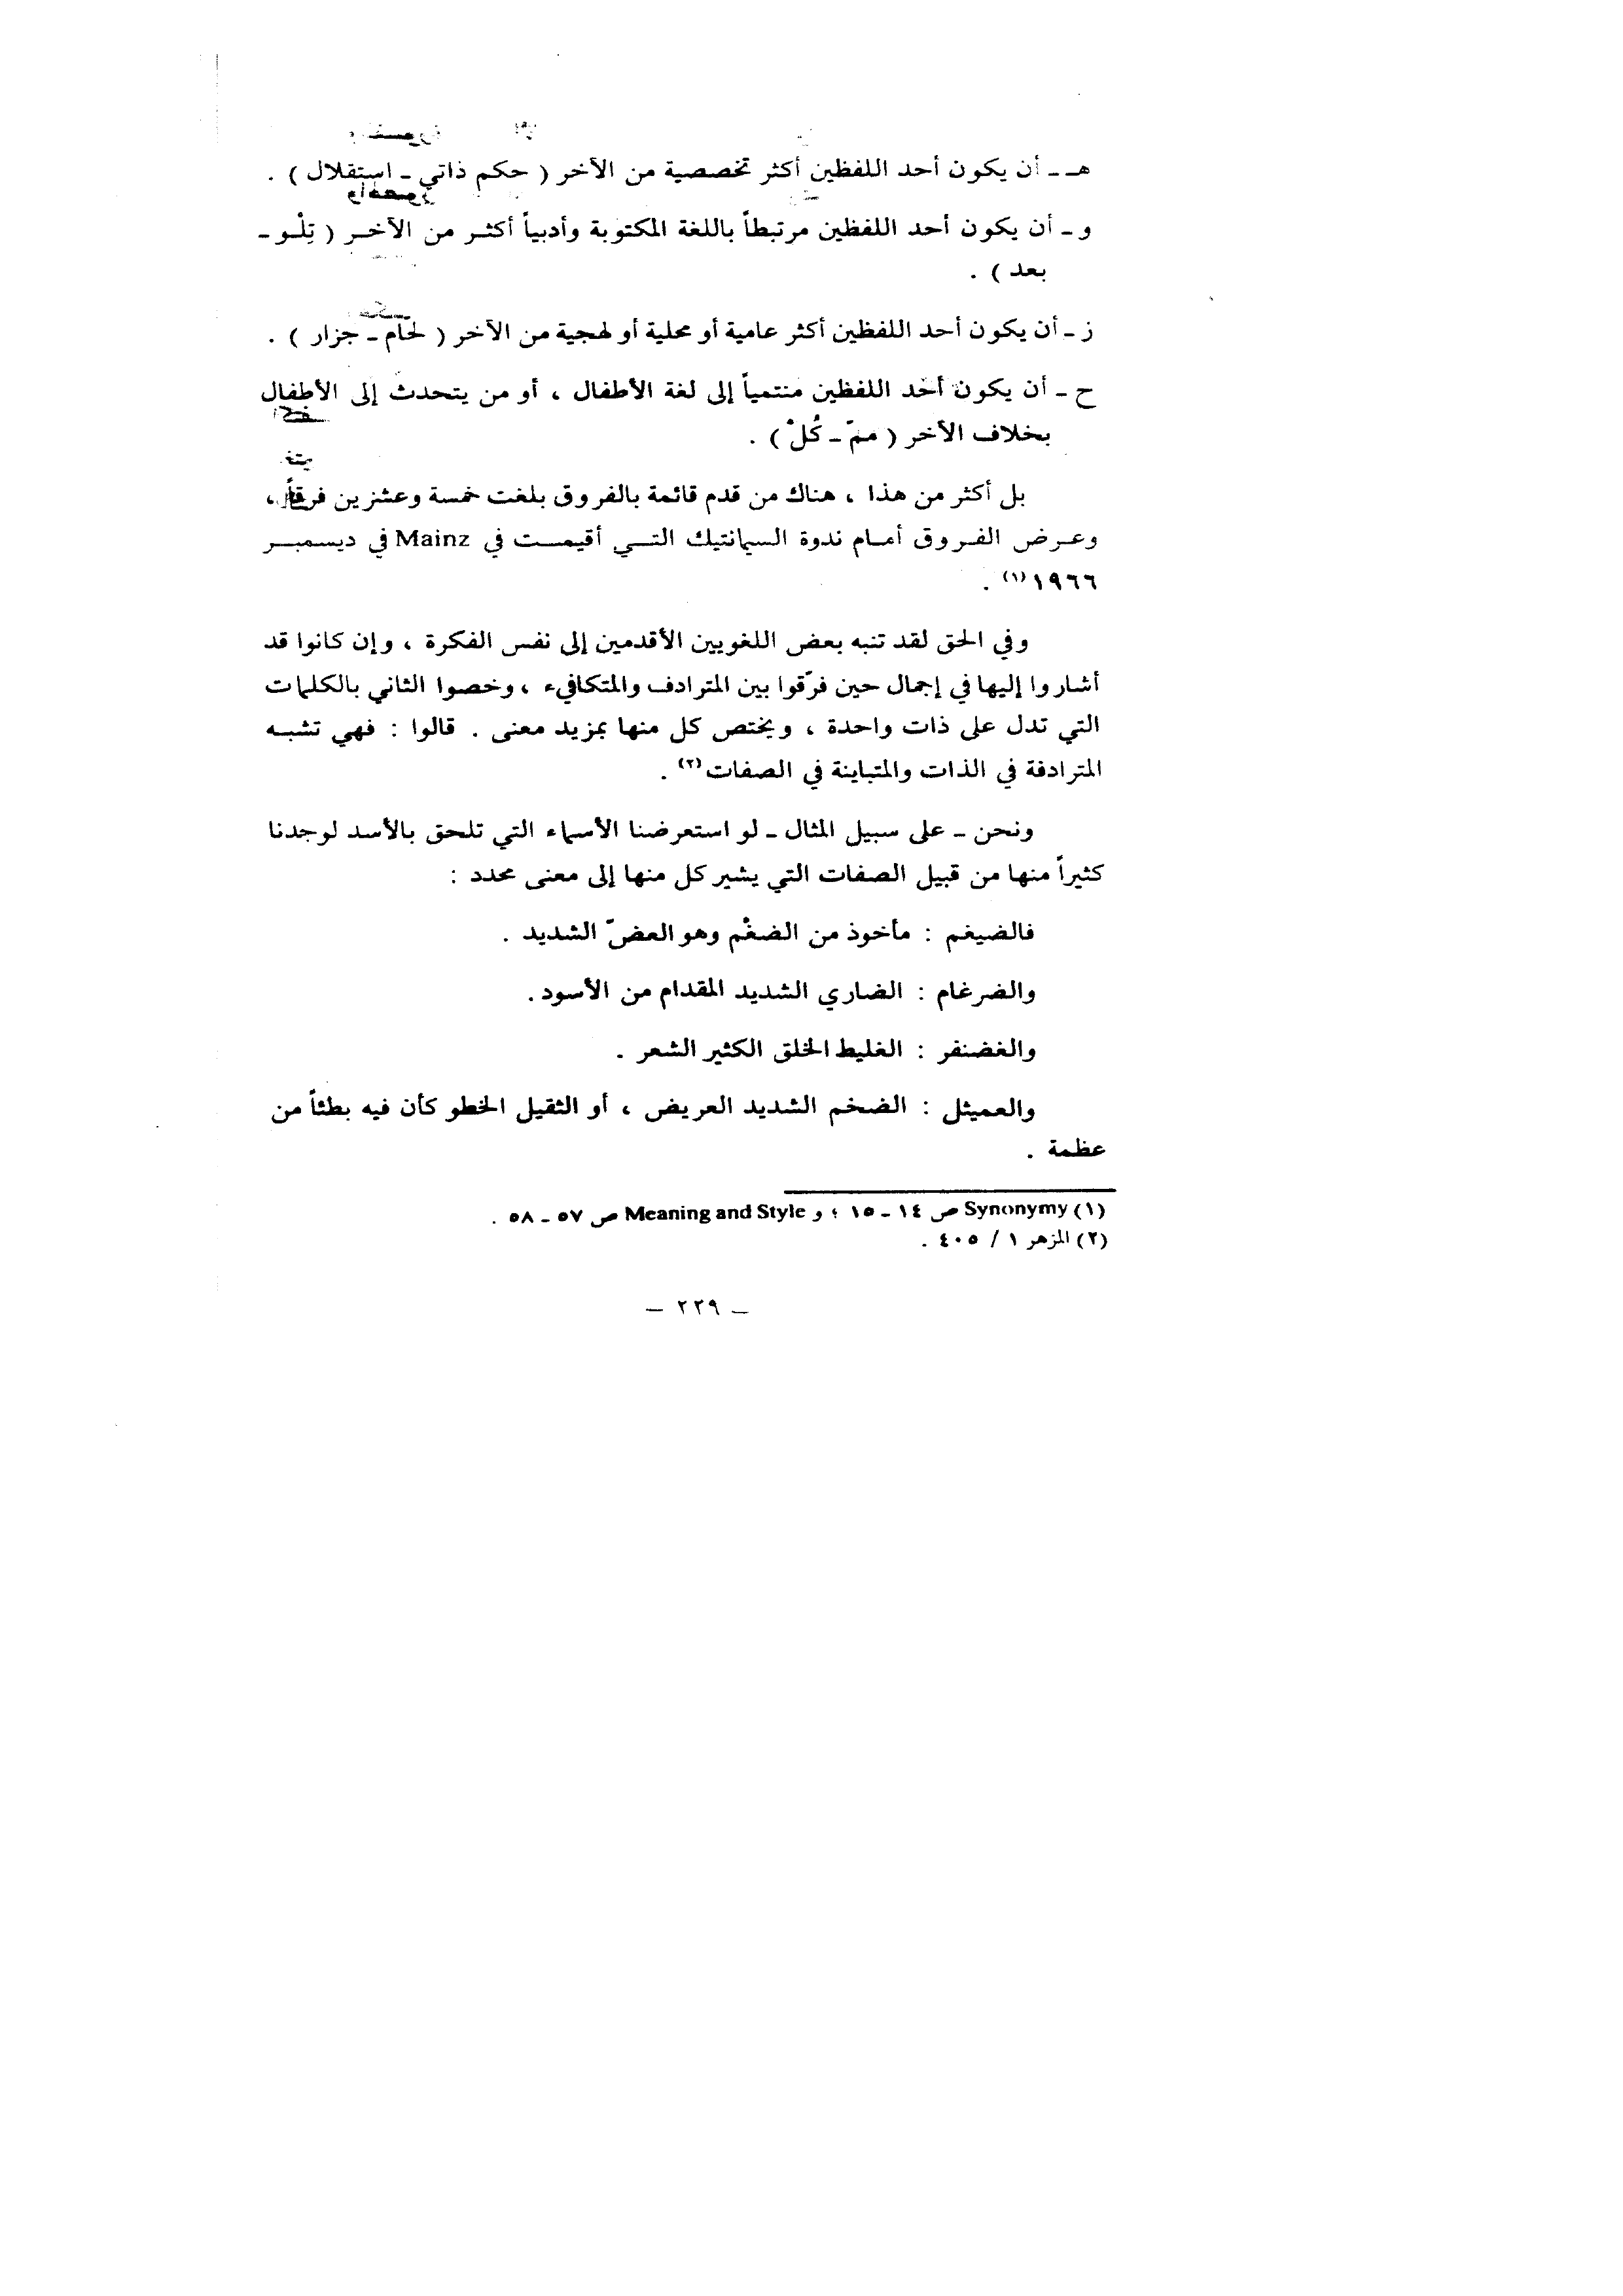 هـ ـ أن يكون أحد اللفظين أكثر تخصصية من الآخر ( حكم ذاتي ـ استقلال ) .
و ـ أن يكون أحد اللفظين مرتبطاً باللغة المكتوبة وأدبياً أكثـر من الآخـر ( تِلْـو ـ
بعد ) .
ز ـ أن يكون أحد اللفظين أكثر عامية أو محلية أو لهجية من الآخر ( لحّام ـ جزار ) .
ح ـ أن يكون أحد اللفظين منتمياً إلى لغة الأطفال ، أو من يتحدث إلى الأطفال
بخلاف الآخر ( ممّ ـ كُلْ ) .
بل أكثر من هذا ، هناك من قدم قائمة بالفروق بلغت خمسة وعشرين فرقاً ،
وعـرض الفـروق أمـام ندوة السيمانتيك التـي أقيمـت في Mainz في ديسمبـر
١٩٦٦ (١) .
وفي الحق لقد تنبه بعض اللغويين الأقدمين إلى نفس الفكرة ، وإن كانوا قد
أشاروا إليها في إجمال حين فرّقوا بين المترادف والمتكافيء ، وخصوا الثاني بالكلمات
التي تدل على ذات واحدة ، ويختص كل منها بمزيد معنى . قالوا : فهي تشبـه
المترادفة في الذات والمتباينة في الصفات (٢) .
ونحن ـ على سبيل المثال ـ لو استعرضنا الأسماء التي تلحق بالأسد لوجدنا
كثيراً منها من قبيل الصفات التي يشير كل منها إلى معنى محدد :
فالضيغم : مأخوذ من الضغْم وهو العضّ الشديد .
والضرغام : الضاري الشديد المقدام من الأسود .
والغضنفر : الغليط الخلق الكثير الشعر .
والعميثل : الضخم الشديد العريض ، أو الثقيل الخطو كأن فيه بطئاً من
عظمة .
(١) Synonymy ص ١٤ ـ ١٥ ؛ و Meaning and Style ص ٥٧ ـ ٥٨ .
(٢) المزهر ١ / ٤٠٥ .
ـ ٢٢٩ ـ